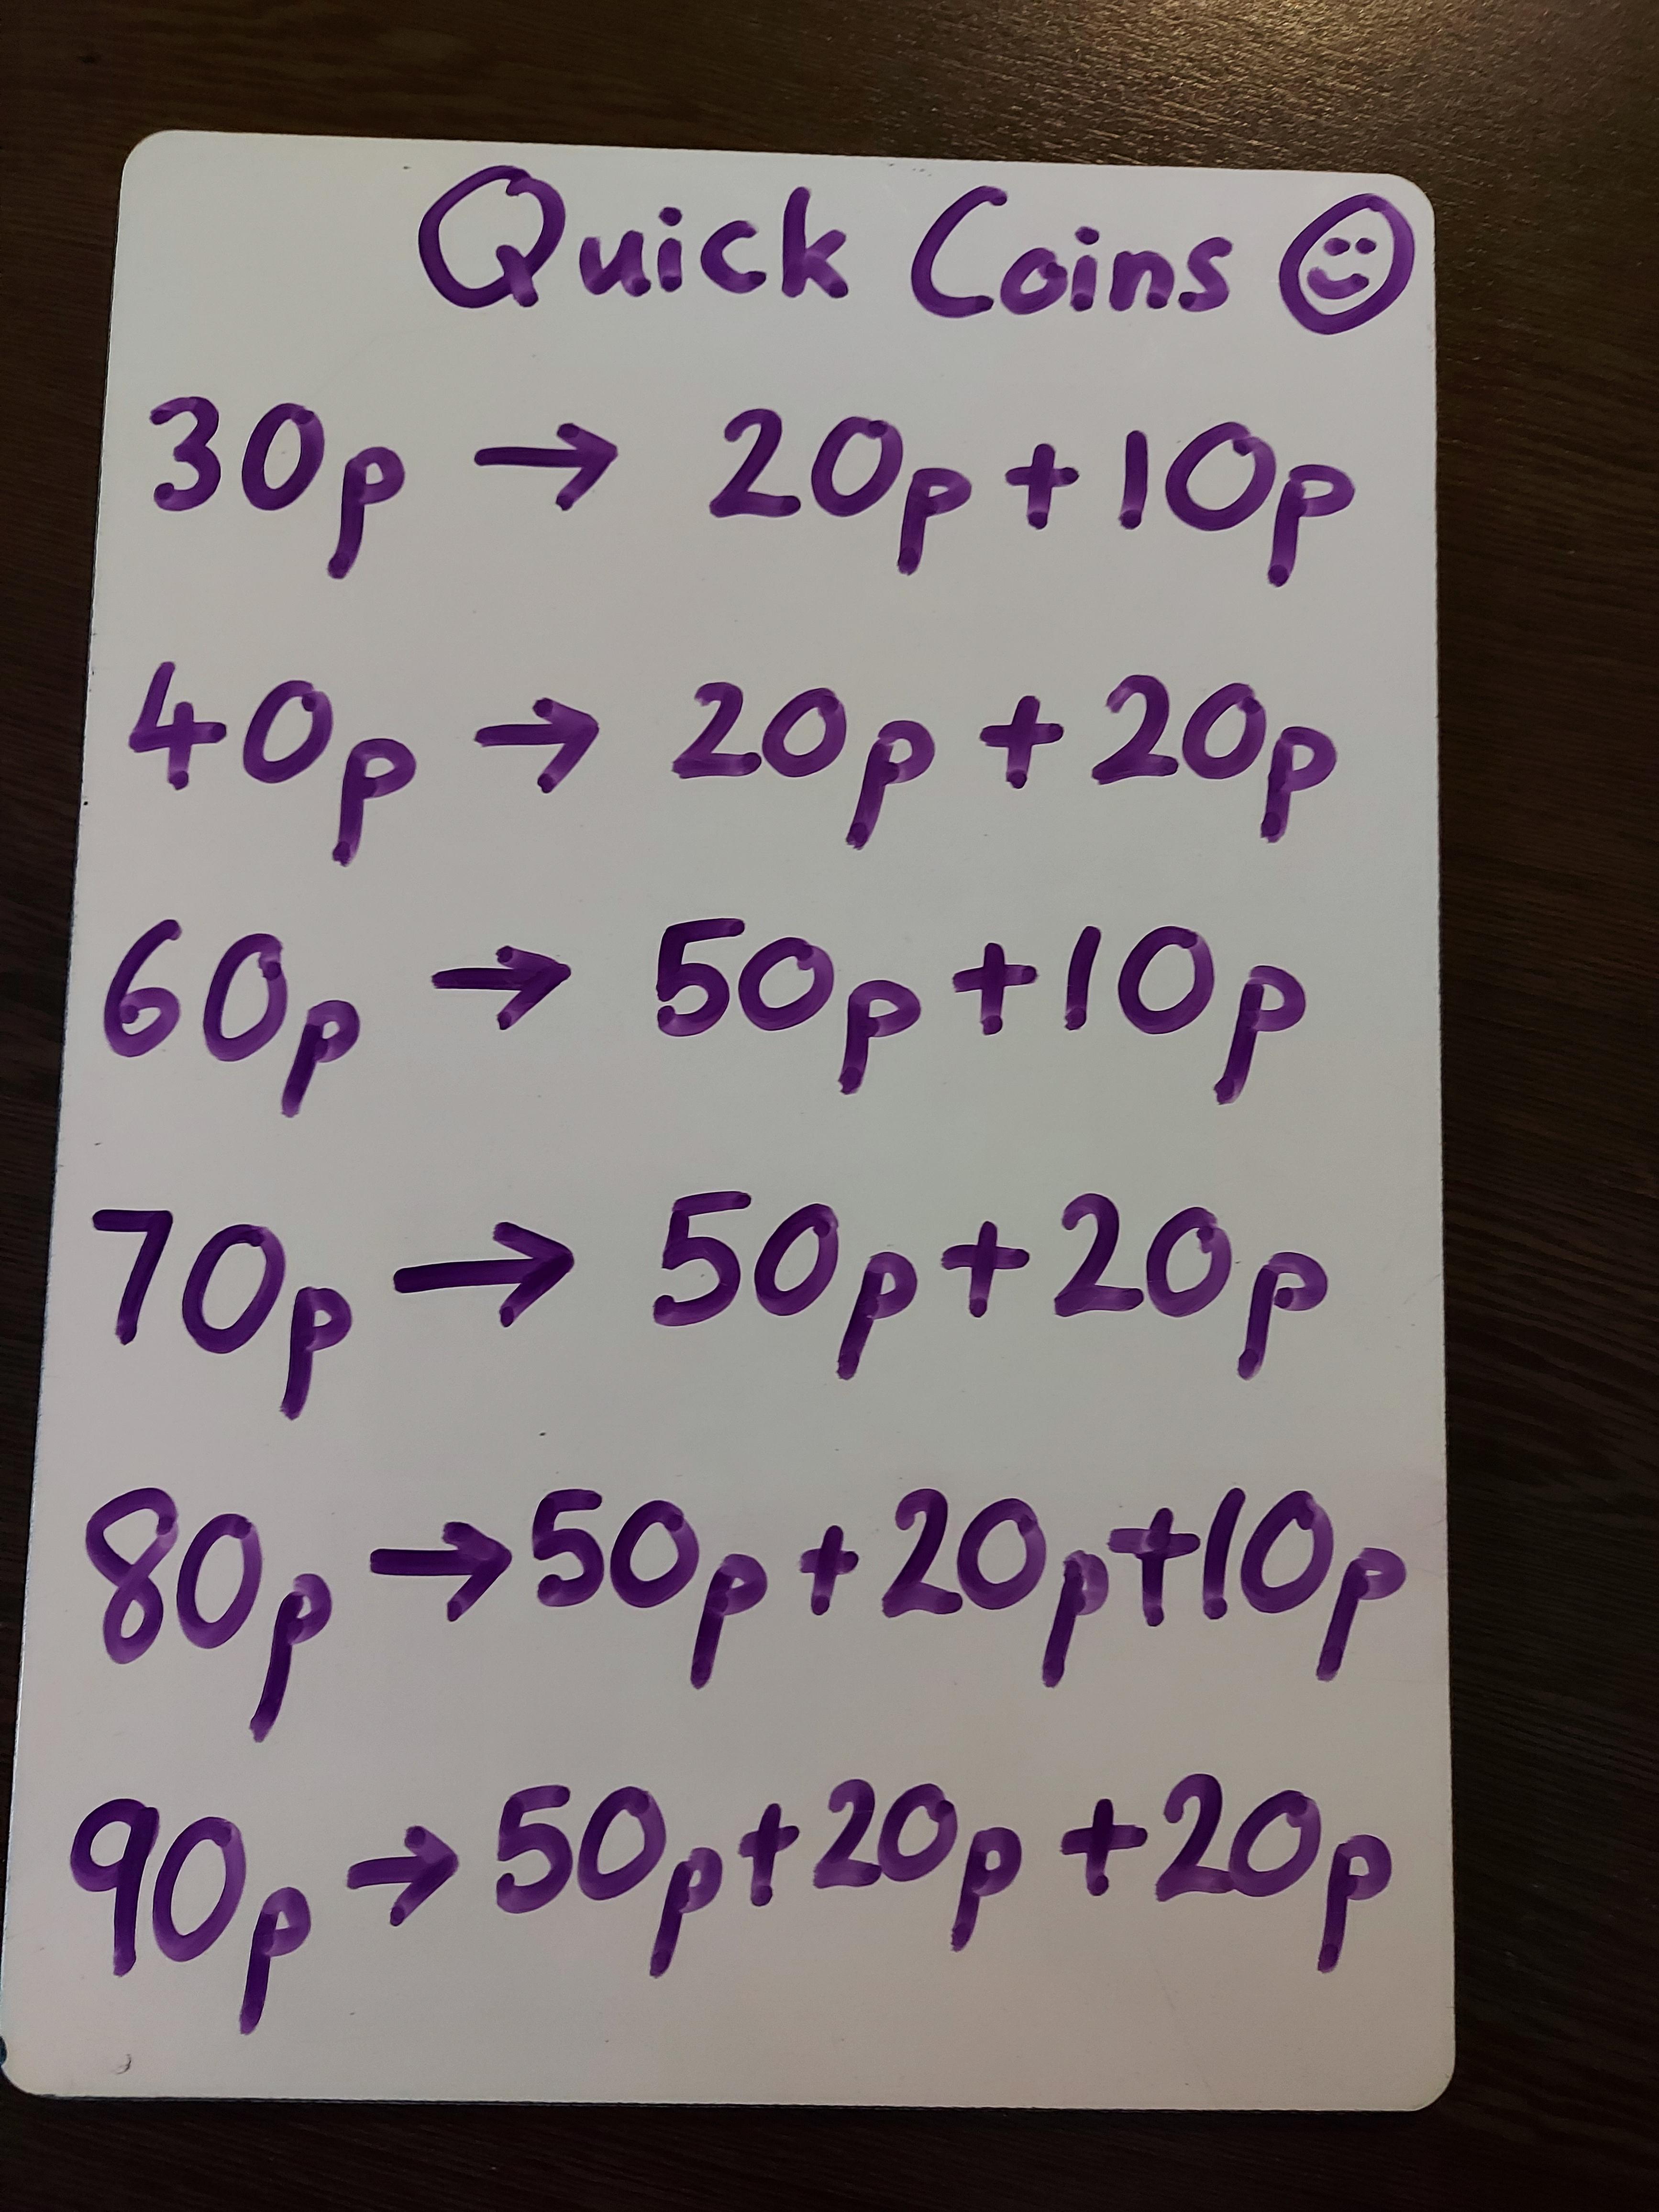 Quick Coins ☺
30p → 20p + 10p
40p → 20p + 20p
60p → 50p + 10p
70p → 50p + 20p
80p → 50p + 20p + 10p
90p → 50p + 20p + 20p